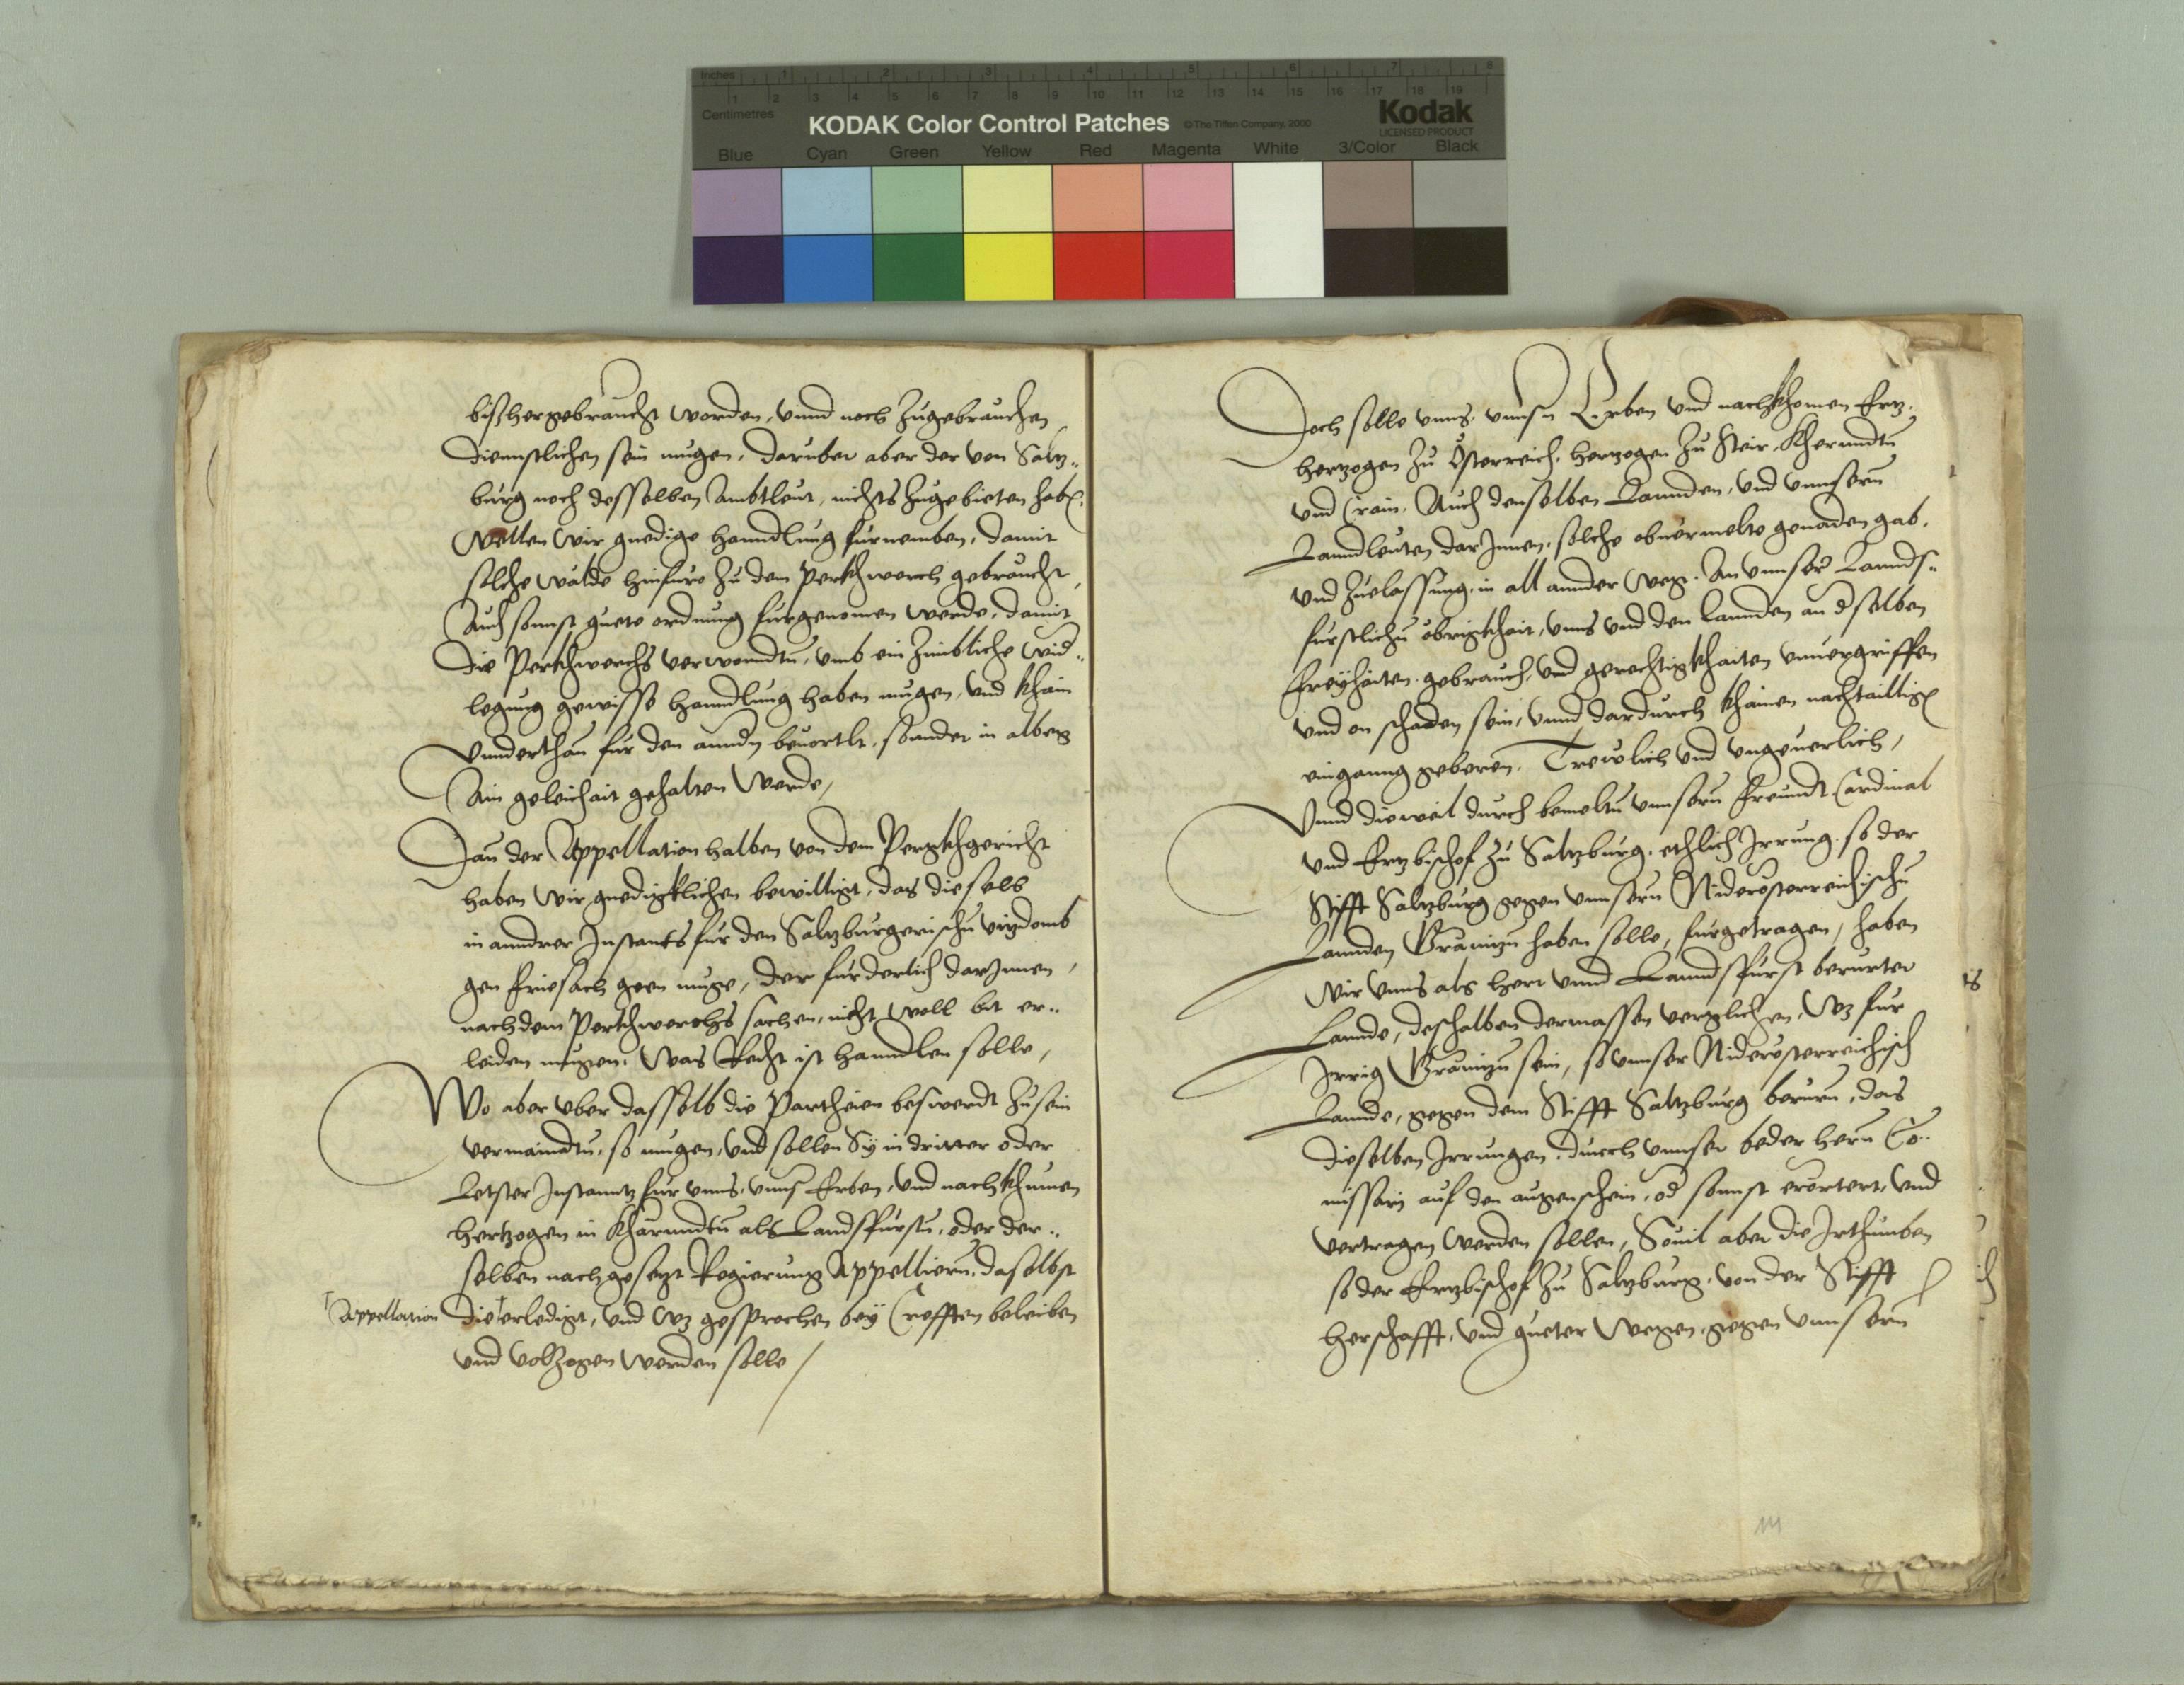 Inches 1 2 3 4 5 6 7 8
1 2 3 4 5 6 7 8 9 10 11 12 13 14 15 16 17 18 19
Centimetres
KODAK Color Control Patches ©The Tiffen Company, 2000 Kodak
LICENSED PRODUCT
Blue Cyan Green Yellow Red Magenta White 3/Color Black
bißhergebraucht worden, vnnd noch zugebrauchen
dienustlichen sein mugen, daruber aber der von Saltz„
burg noch desselben Ambtleut, nichts zugebieten hab
Wellen wir gnedige hanndlung furnemben, damit
solche wälde hinfuro zu dem Perkhwerch gebraucht,
Auch sonnst guete ordnung furgenomen werde, damit
die Perkhwerchs verwonndtn, vmb ein zimbliche wid„
legung gewisse hanndlung haben mugen, vnd khain
Vnnderthan fur den anndn beuortlt, sonnder in albeg
Ain geleichait gehalten werde,
Dan der Appellation halben von dem Pergkhgericht
haben wir gnedigklichen bewilligt, das dieselb
in anndrer Instants fur den Saltzburgerischn vizdomb
gen Friesach geen muge, der furderlich darJnnen,
nach dem Perkhwerchs sachen, nicht woll bit er„
leiden mugen, Was Recht ist hanndlen solle,
Wo aber vber dasselb die Partheien beswerdt zusein
vermaindtn, so mugen, vnd sollen Sy in dritter oder
Letster Instanntz fur vnns, vnns Erben, vnd nachkhumen
hertzogen in Kharnndtn als Landsfurstn, oder der„
selben nachgesetzt Regierung Appelliern, daselbst
† Appellation die † erledigt, vnd wz gesprochen bey Crefften beleiben
vnd volzogen werden solle /
Doch solle vnns, vnnsn Erben vnd nachkhomen Ertz„
hertzogen zu Österreich, hertzogen zu Steir, Khernndtn
vnd Crain, Auch denselben Lannden, vnd vnnsern
Lanndleuten darJnnen, solche obuermelte genaden gab,
vnd zuelassung, in all annder weg, An vnnser Lannds„
furstlichn öbrigkhait, vnns vnd den lannden an dselben
freyhaiten, gebrauch, vnd gerechtigkhaiten vnuergriffen
vnd on schaden sein, vnnd dardurch khainen nachtaillig
einganng geberen, Trewlich vnd vngeuerlich,
Vnnd dieweil durch bemeltn vnnsern freundt Cardinal
vnd Ertzbischof zu Saltzburg, ethlich Jrrung, so der
Stifft Saltzburg gegen vnnsern Niderösterreichischn
Lannden Grainizn haben solle, furgetragen, haben
wir vnns als herr vnnd Lanndsfurst berurter
Lannde, deshalben dermassen verglichen, Wz fur
Jrrig Grainizn sein, so vnnser Niderösterreichisch
Lannde, gegen dem Stifft Saltzburg berurn, das
dieselben Jrrungen, durch vnnser beder herrn Co„
missarj auf den augenschein, od sonnst erörtert, vnd
vertragen werden sollen, Souil aber die Jrthumben
so der Ertzbischof zu Saltzburg, von der Stifft
herschafft, vnd gueter wegen, gegen vnnsern